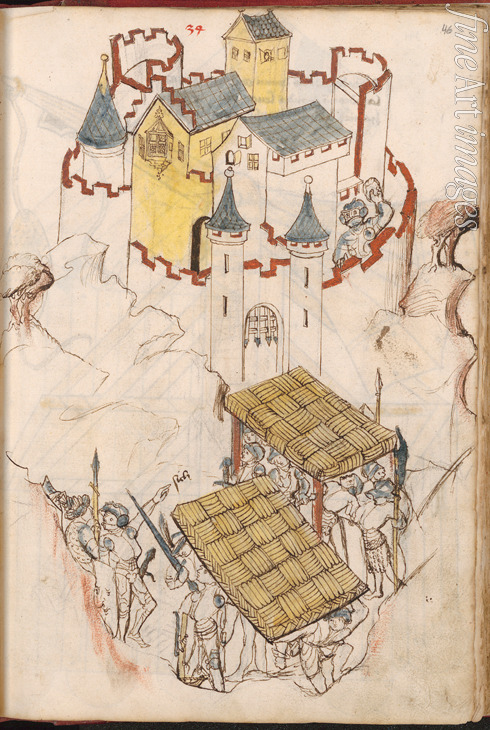 34
46
fine art images